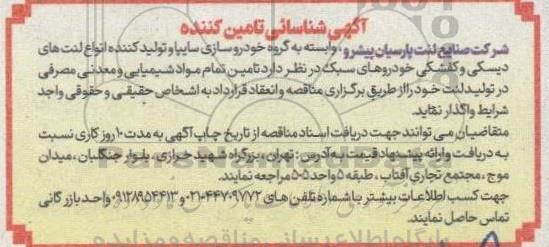 آگهی شناسائی تامین کننده
شرکت صنایع لنت پارسیان پیشرو، وابسته به گروه خودروسازی سایپا و تولید کننده انواع لنت های
دیسکی و کفشکی خودروهای سبک در نظر دارد تامین تمام مواد شیمیایی و معدنی مصرفی
در تولید لنت خود را از طریق برگزاری مناقصه و انعقاد قرارداد به اشخاص حقیقی و حقوقی واجد
شرایط واگذار نماید.
متقاضیان می توانند جهت دریافت اسناد مناقصه از تاریخ چاپ آگهی به مدت ۱۰ روز کاری نسبت
به دریافت و ارائه پیشنهاد قیمت به آدرس: تهران، بزرگراه شهید خرازی، بلوار جنگلبان، میدان
موج، مجتمع تجاری آفتاب، طبقه ۵ واحد ۵۰۵ مراجعه نمایند.
جهت کسب اطلاعات بیشتر با شماره تلفن های ۴۴۷۰۹۷۷۲-۰۲۱ و ۰۹۱۲۸۹۵۴۴۱۳ واحد بازرگانی
تماس حاصل نمایند.
پایگاه اطلاع رسانی مناقصه و مزایده